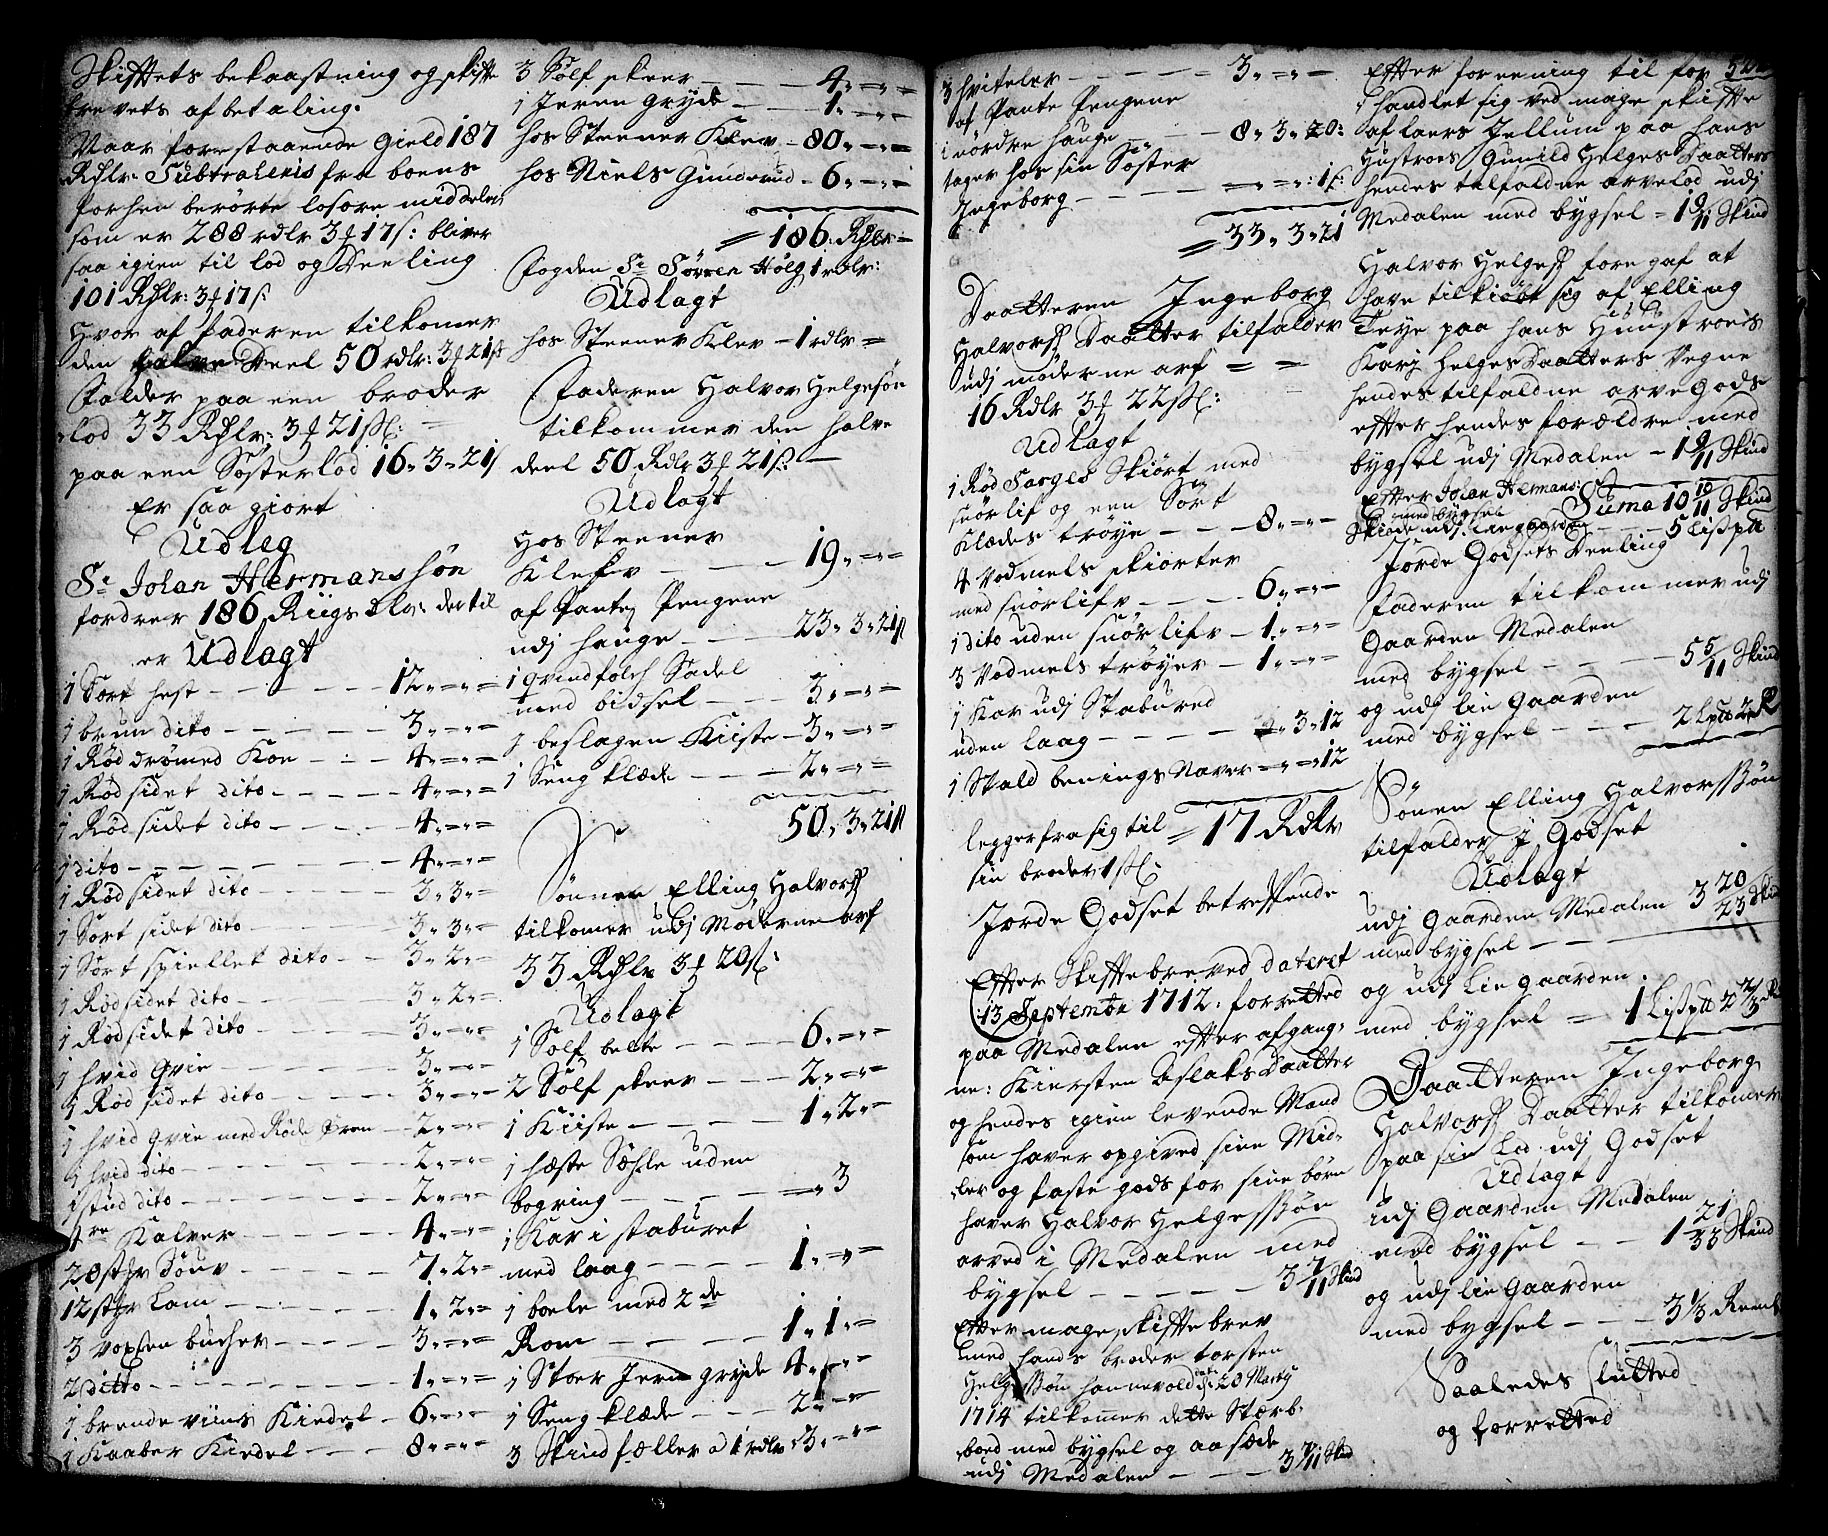 Skifftets bekaastning og skifte
brevets af betaling.
Naar forestaaende gield 187
Rdlr: Subtraheris fra boens
forhen berørte løsøre midd
som er 288 rdlr 3 17 s: bliver
saa igien til lod og Deeling
101 Rdlr: 3 17 s:
Hvor af faderen tilkomer
den halve Deel 50 rdlr: 3 21 s
falder paa een broder
lod 33 Rdlr: 3 21 s:
paa een Søster lod 16 " 3 " 21 s
Er saa giort
Udleg
Sr. Johan Hermanssøn
fordrer 186 Riigs dlr: der til
er Udlagt
1 Sort hest - - - 12 " = " =
1 brun dito - - - 3 " = " =
1 Rød drømed Koe - - - 4 " = " =
1 Rød sidet dito - - - 4 " = " =
1 Rød sidet dito - - - 4 " = " =
1 dito - - - 4 " = " =
1 Rød sidet dito - - - 3 " 3 " =
1 Sort sidet dito - - - 3 " 3 " =
1 Sort spiellet dito - - - 3 " 2 " =
1 Rød sidet dito - - - 3 " 2 " =
1 Rød sidet dito - - - 3 " = " =
1 hvid qvie - - - 3 " = " =
1 Rød sidet dito - - - 3 " = " =
1 hvid qvie med Røde øren - 2 " = " =
1 hvid dito - - - 2 " = " =
1 stud dito - - - 2 " = " =
4re Kalver - - - 4 " = " =
20 st. Souv - - - 7 " 2 " =
12 st. Lam - - - 1 " 2 " =
3 voxsen bucher - - - 3 " = " =
2 ditto - - - 1 " = " =
1 brende viins Kiedel - 6 " = " =
1 Kaaber Kiedel - - 8 " = " =
3 Sølf skeer - - - 4 " = " =
1 Jeren gryde - - - 1 " = " =
hos Steener Klev - 80 " = " =
hos Niels Gunderud - 6 " = " =
= 186 Rdlr =
Fogden Sr. Sørren Hølg 1 rdlr:
Udlagt
hos Steener Klev - 1 rdlr =
Faderen Halvor Helgesøn
tilkommer den halve
deel 50 Rdlr 3 21 s: -
Udlagt
Hos Steener
Klefv - - - 19 " = " =
af Pante Pengene
udj hauge - - - 23 " 3 " 21 s
1 qvindfolch Sadel
med bidsel - - - 3 " = " =
1 beslagen Kiiste - 3 " = " =
1 Seng klæde - - - 2 " = " =
50 " 3 " 21 s
Sønnen Elling Halvors
tilkomer udj Møderne arf
33 Rdlr 3 20 s:
Udlagt
1 Sølf belte - - - 6 " = " =
2 Sølf skeer - - - 2 " = " =
1 Kiiste - - - 1 " 2 " =
1 hæste Sæhle uden
bogring - - - = " 3
1 Kar i staburet
med laag - - - 1 " = " =
1 boele med 2de
Rom - - - 1 " 1 " =
1 Stoer Jern gryde 4 " = " =
1 Seng klæde - - - 2 " = " =
3 Skindfæller a 1 rdlr 3 " = " =
3 hviteler - - - 3 " = " =
af Pante Pengene
i nørdre hauge - - - 8 " 3 " 20:
tager hos sin Søster
Ingeborg - - - = " = " 1 s:
= 33 " 3 " 21
Daatteren Ingeborg
Halvors Daatter tilfalder
udj møderne arf = =
16 Rdlr 3 22 s:
Udlagt
1 Rød Sarges Skiørt med
snørlif og een Sort
Klædes trøye - - - 8 " = " =
4 Vodmels skiørter
med snørlifv - - - 6 " = " =
1 dito uden snørlifv - 1 " = " =
3 Vodmels trøyer - - 1 " = " =
1 Kar udj Stabured
uden laag - - - " 3 " 12
1 Stald benings Naver = " = " 12
legger fra sig til = 17 Rdlr
sin broder 1 s:
Jorde Godset betreffende
Effter Skiftebreved dateret
13 Septembr 1712: forretted
paa Medalen effter afgang:
ne: Kiersten Aslaks Daatter
og hendes igien levende Mand
som haver opgived sine Mid:
ler og faste gods for sine børn
haver Halvor Helgessøn
arved i Medalen med
bygsel - - - 3 7/11 Skind
Effter mageskifftebrev
med hands broder torsten
Helgessøn 20 Martj
1714 tilkomer dette Stærb:
boed med bygsel og aasæde
udj Medalen - - - 3 7/11 Skind
Effter foreening til for
handlet sig ved mageskiffte
af laers Jellum paa hans
Hustroes Gunild Helges Daatters
hendes tilfaldne arvelod udj
Medalen med bygsel = 1 9/11 Skind
Halvor Helges foregaf at
have tilkiøbt sig af Elling
Teye paa hans Huustroes
Karj Helges Daatters Vegne
hendes tilfaldne arve gods
effter hendes forældre med
bygsel udj Medalen - 1 9/11 Skind
Effter Johan Hermans: Suma 10 10/11 Skind
med bygsel
Skiøde udj Lie gaarden - - - 5 lispd
Jorde Godsets Deeling
Faderen tilkommer udj
Gaarden Medalen
med bygsel - - - 5 5/11 Skind
og udj lie gaarden
med bygsel - - - 2 Lpd 2 R
Sønen Elling Halvorssøn
tilfalder J Godset
Udlagt
udj Gaarden Medalen 3 20/23 Skind
med bygsel - -
og udj Lie gaarden
med bygsel = 1 Lispd 2 2/3 R
Daatteren Ingeborg
Halvors Daatter tilkomer
paa sin Lod udj Godset
Udlagt
udj Gaarden Medalen
med bygsel - - 1 21/33 Skind
og udj lie gaarden
med bygsel - - - 3 1/3 Remb
Saaledes Slutted
og forretted